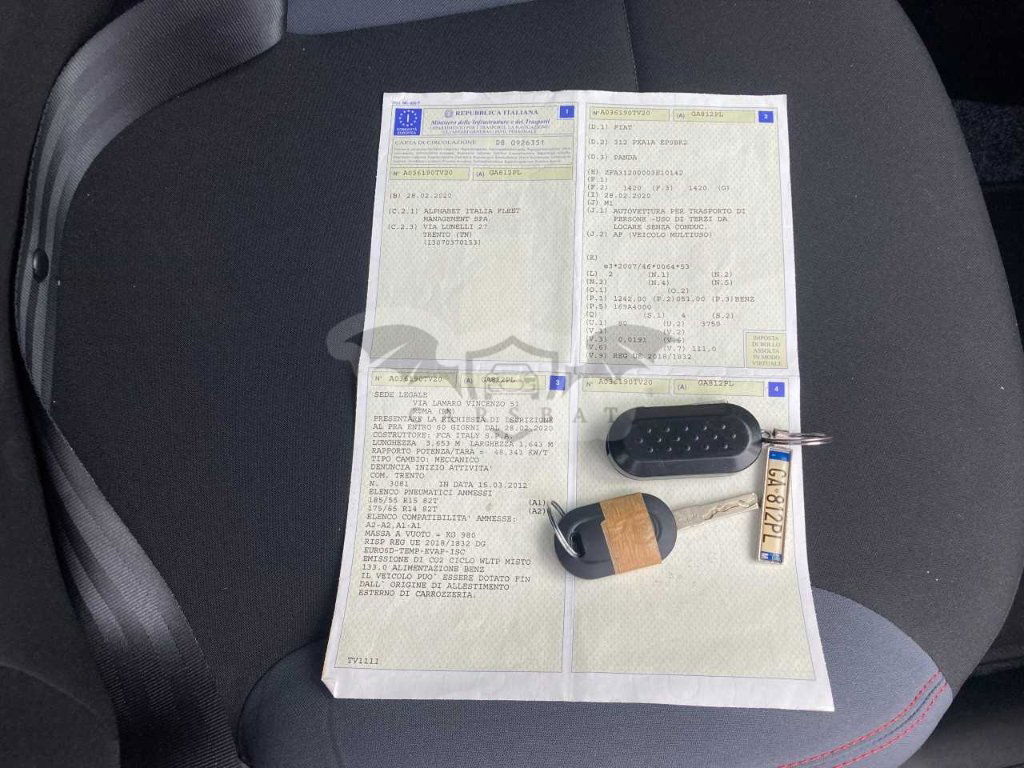 REPUBBLICA ITALIANA
1
Ministero delle Infrastrutture e dei Trasporti
I
COMUNITÀ EUROPEA
CARTA DI CIRCOLAZIONE DB 0926351
N° A036190TV20 (A) GA812PL
(B) 28.02.2020
(C.2.1) ALPHABET ITALIA FLEET
MANAGEMENT SPA
(C.2.3) VIA LUNELLI 27
TRENTO (TN)
(13070370153)
N° A036190TV20 (A) GA812PL 2
(D.1) FIAT
(D.2) 312 PXA1A EP0BR2
(D.3) PANDA
(E) ZFA31200003E10142
(F.1)
(F.2) 1420 (F.3) 1420 (G)
(I) 28.02.2020
(J) M1
(J.1) AUTOVETTURA PER TRASPORTO DI
PERSONE -USO DI TERZI DA
LOCARE SENZA CONDUC.
(J.2) AF (VEICOLO MULTIUSO)
(K)
e3*2007/46*0064*53
(L) 2 (N.1) (N.2)
(N.3) (N.4) (N.5)
(O.1) (O.2)
(P.1) 1242.00 (P.2)051.00 (P.3)BENZ
(P.5) 169A4000
(Q) (S.1) 4 (S.2)
(U.1) 80 (U.2) 3750
(V.1) (V.2)
(V.3) 0,0191 (V.5)
(V.6) (V.7) 111.0
(V.9) REG UE 2018/1832
IMPOSTA
DI BOLLO
ASSOLTA
IN MODO
VIRTUALE
N° A036190TV20 (A) GA812PL 3
SEDE LEGALE
VIA LAMARO VINCENZO 51
ROMA (RM)
PRESENTARE LA RICHIESTA DI ISCRIZIONE
AL PRA ENTRO 60 GIORNI DAL 28.02.2020
COSTRUTTORE: FCA ITALY S.P.A.
LUNGHEZZA 3,653 M LARGHEZZA 1,643 M
RAPPORTO POTENZA/TARA = 48,343 KW/T
TIPO CAMBIO: MECCANICO
DENUNCIA INIZIO ATTIVITA'
COM. TRENTO
N. 3081 IN DATA 15.03.2012
ELENCO PNEUMATICI AMMESSI
185/55 R15 82T (A1)
175/65 R14 82T (A2)
ELENCO COMPATIBILITA' AMMESSE:
A2-A2,A1-A1
MASSA A VUOTO = KG 980
RISP REG UE 2018/1832 DG
EURO6D-TEMP-EVAP-ISC
EMISSIONE DI CO2 CICLO WLTP MISTO
133.0 ALIMENTAZIONE BENZ
IL VEICOLO PUO' ESSERE DOTATO FIN
DALL' ORIGINE DI ALLESTIMENTO
ESTERNO DI CARROZZERIA.
TV1111
N° A036190TV20 (A) GA812PL 4
GA 812PL